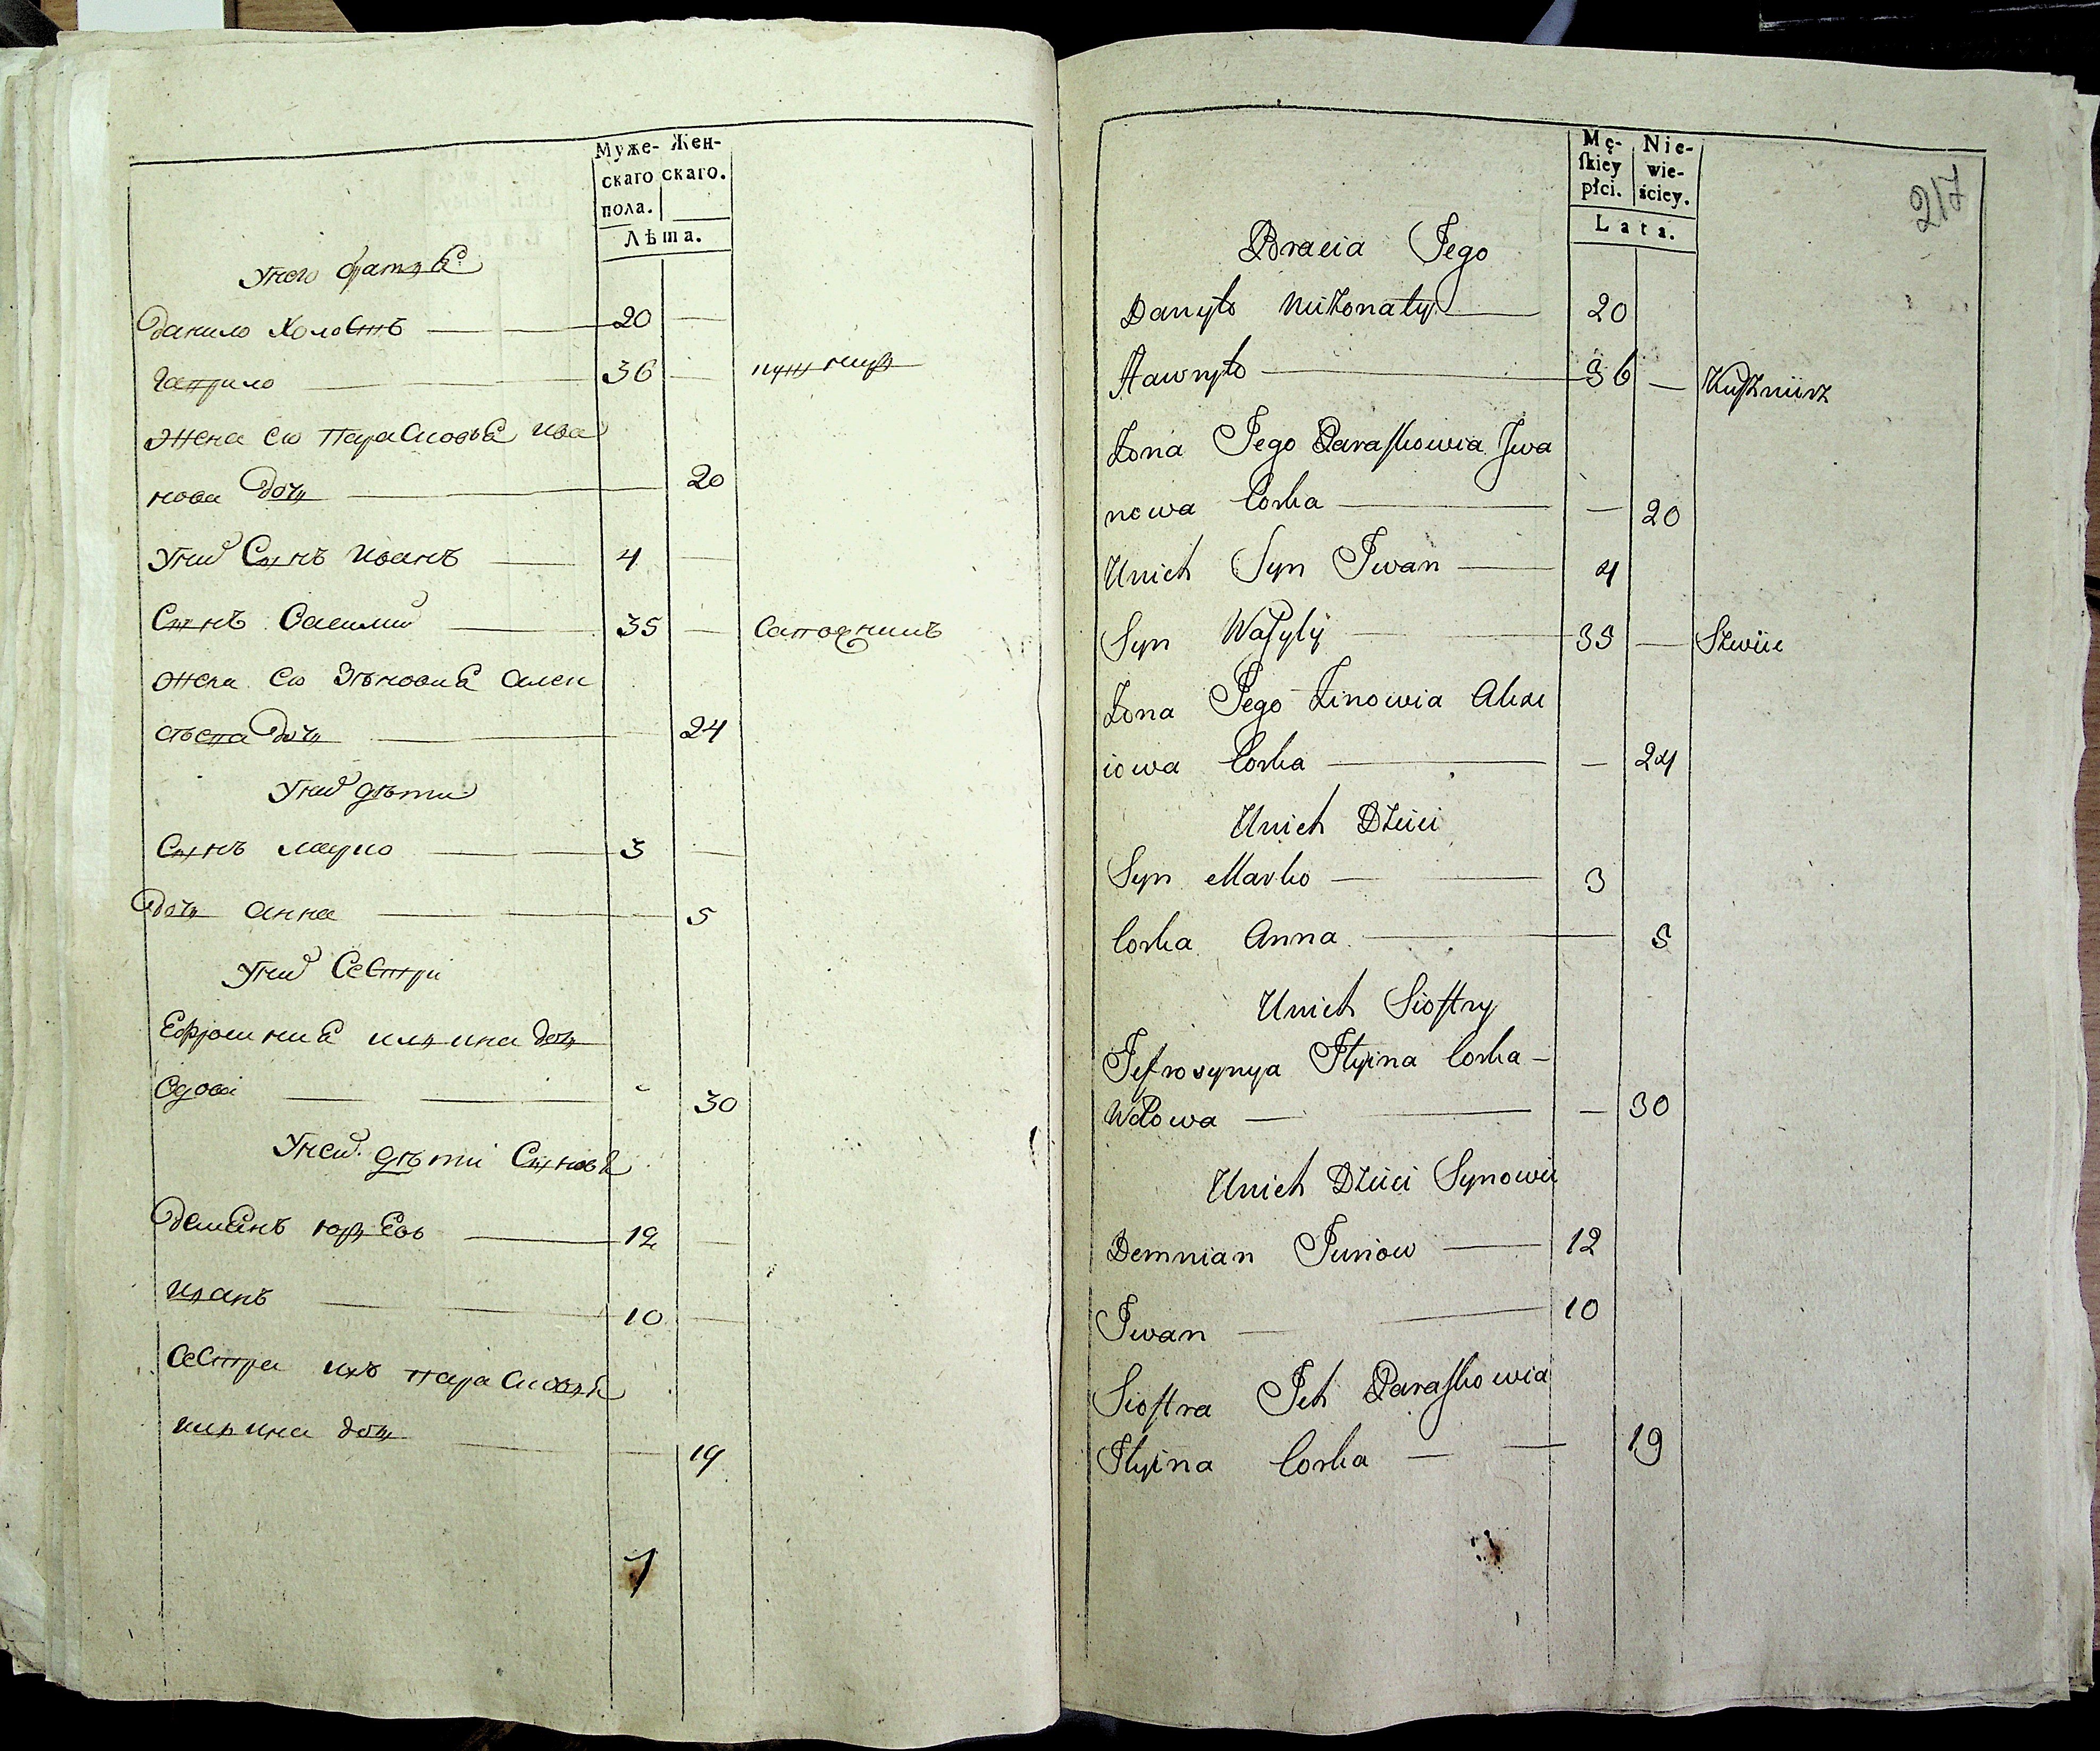 Муже- Жен-
скаго скаго.
пола.
Лѣта.
Унего братья
Данило Холостъ 20
Гаврило 36
Жена его Парасковья Ива
нова дочь 20
Унихъ Сынъ Иванъ 4
Сынъ Василий 35 Сапожникъ
Жена его Зѣновия Алек
сѣева дочь 24
Унихъ дѣти
Сынъ Марко 3
Дочь Анна 5
Унихъ Сестри
Ефросиния Ильина дочь
Вдова 30
Унеи дѣти Сыновя
Демянъ Юрьевъ 12
Иванъ 10
Сестра ихъ Парасковья
Ильина дочь 19
1
Mę-
ſkiey
płci.
Nie-
wie-
ściey.
Lata.
217
Bracia Jego
Danyło Niżonaty 20
Hawryło 36 Kuſznierz
Żona Jego Paraſkowia Jwa
nowa Corka 20
Unich Syn Jwan 4
Syn Waſylÿ 35 Szwiec
Żona Jego Zinowia Alexi
iowa Corka 24
Unich Dzieci
Syn Marko 3
Corka Anna 5
Unich Sioſtry
Jefrosynya Jlyina Corka
Wdowa 30
Unich Dzieci Synowie
Demnian Juriow 12
Jwan 10
Sioſtra Jch Paraſkowia
Jlyina Corka 19